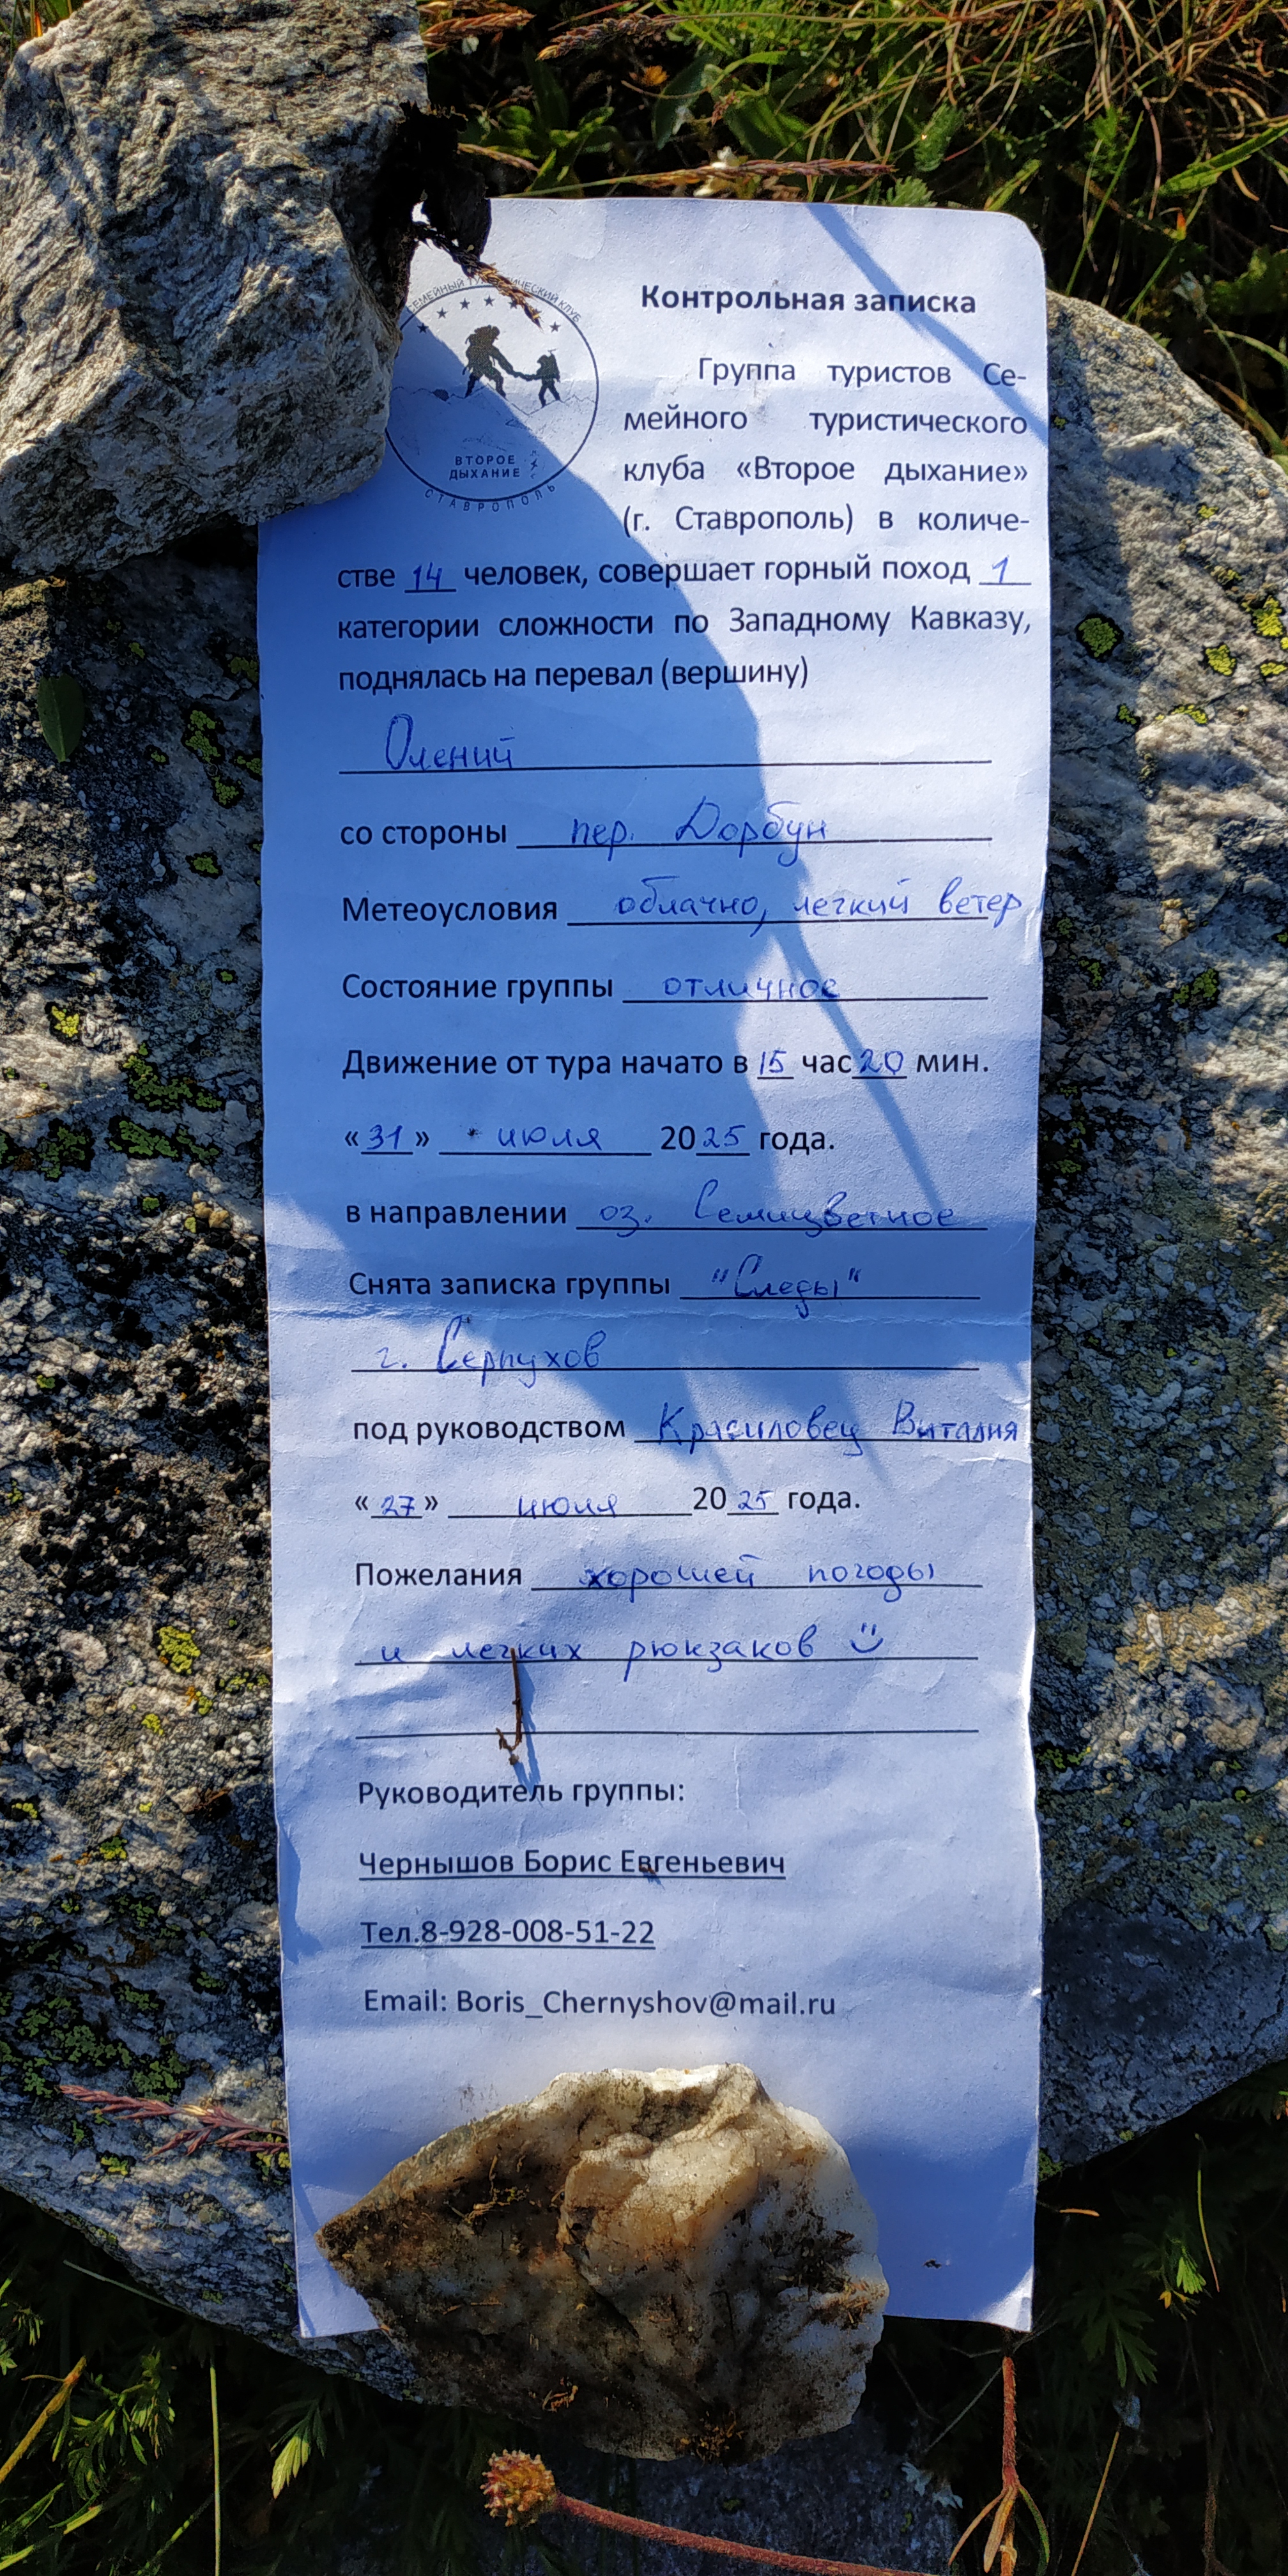 СЕМЕЙНЫЙ ТУРИСТИЧЕСКИЙ КЛУБ
ВТОРОЕ
ДЫХАНИЕ
СТАВРОПОЛЬ
Контрольная записка
Группа туристов Се-
мейного туристического
клуба «Второе дыхание»
(г. Ставрополь) в количе-
стве 14 человек, совершает горный поход 1
категории сложности по Западному Кавказу,
поднялась на перевал (вершину)
Олений
со стороны пер. Дорбун
Метеоусловия облачно, легкий ветер
Состояние группы отличное
Движение от тура начато в 15 час 20 мин.
«31» июля 2025 года.
в направлении оз. Семицветное
Снята записка группы "Следы"
г. Серпухов
под руководством Красиловец Виталия
«27» июля 2025 года.
Пожелания хорошей погоды
и легких рюкзаков
Руководитель группы:
Чернышов Борис Евгеньевич
Тел.8-928-008-51-22
Email: Boris_Chernyshov@mail.ru